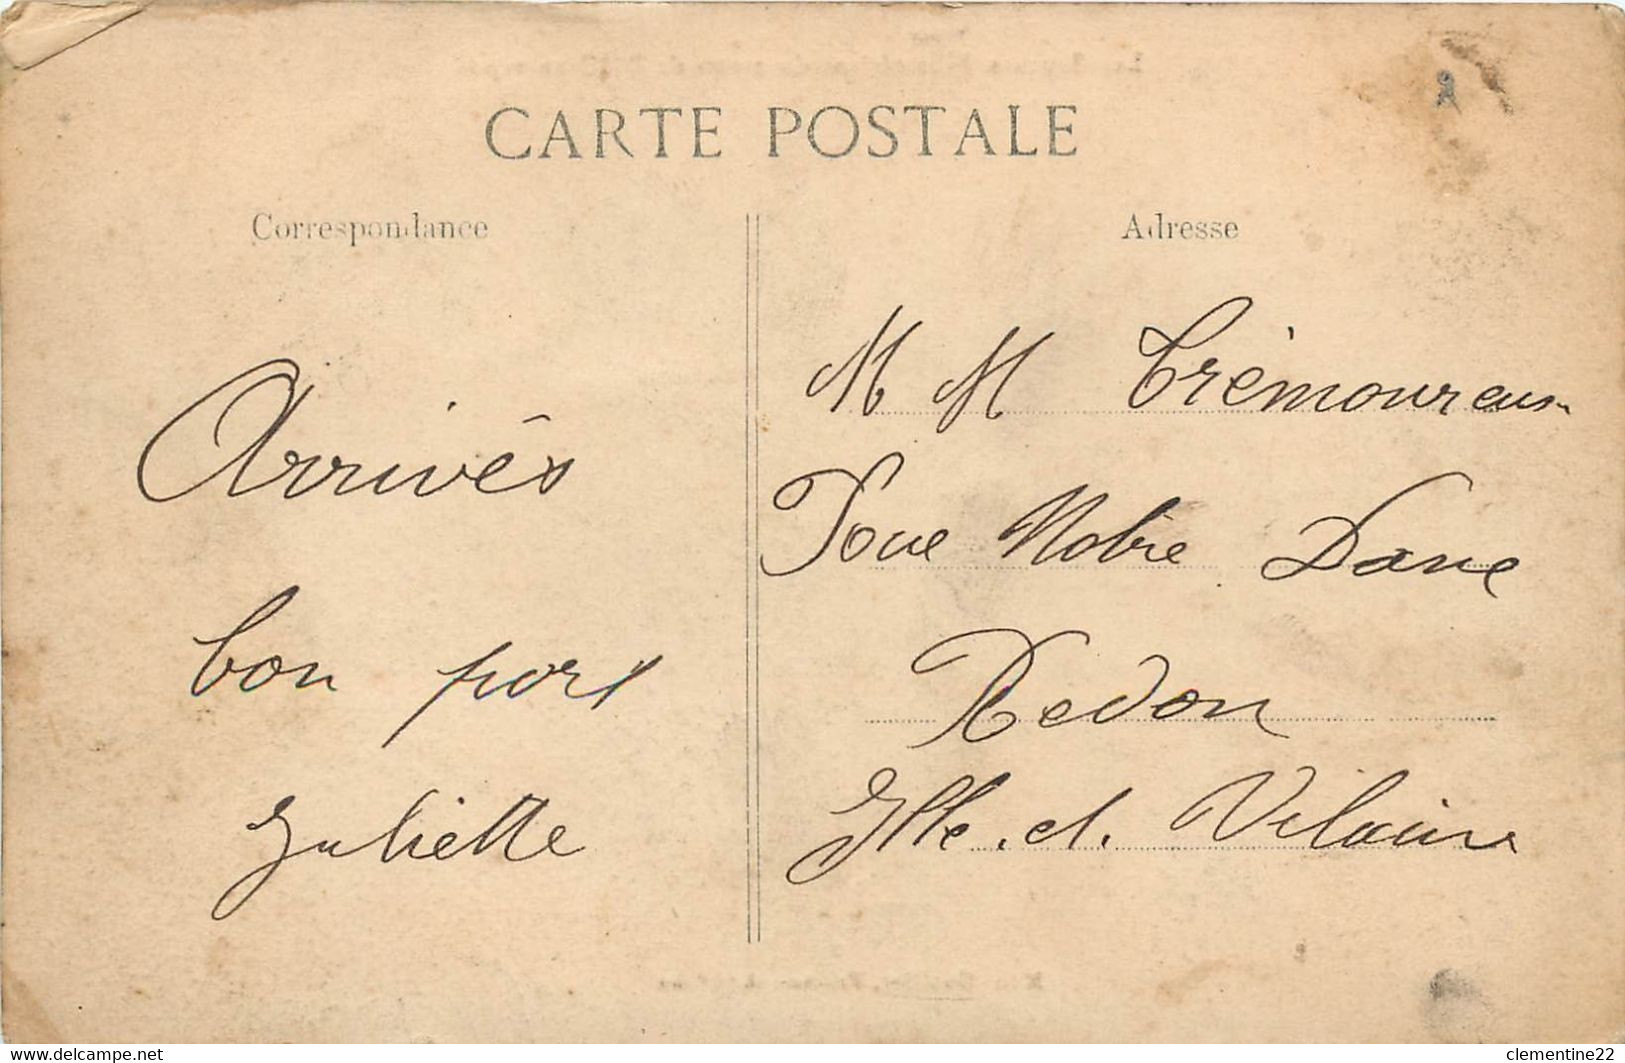 CARTE POSTALE
Correspondance
Adresse
Arrivés
bon port
Juliette
M M Trémoureux
Notre Dame
Redon
Ille. et. Vilaine
www.delcampe.net
clementine22